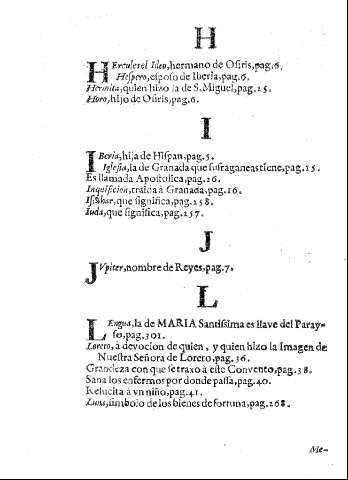 H
HErcules el Ideo, hermano de Osiris, pag. 6.
Hespero, esposo de Iberia, pag. 6.
Hermita, quien hizo la de S. Miguel, pag. 25.
Horo, hijo de Osiris, pag. 6.
I
IBeria, hija de Hispan, pag. 5.
Iglesia, la de Granada que sufraganeas tiene, pag. 15.
Es llamada Apostolica, pag. 26.
Inquisicion, traida à Granada, pag. 16.
que significa, pag. 258.
Iuda, que significa, pag. 257.
J
JVpiter, nombre de Reyes, pag. 7.
L
LEngua, la de MARIA Santissima es llave del Paray-
so, pag. 301.
Loreto, à devocion de quien, y quien hizo la Imagen de
Nuestra Señora de Loreto, pag. 36.
Grandeza con que se traxo à este Convento, pag. 38.
Sana los enfermos por donde passa, pag. 40.
Resucita à vn niño, pag. 41.
Luna, simbolo de los bienes de fortuna, pag. 268.
Me-